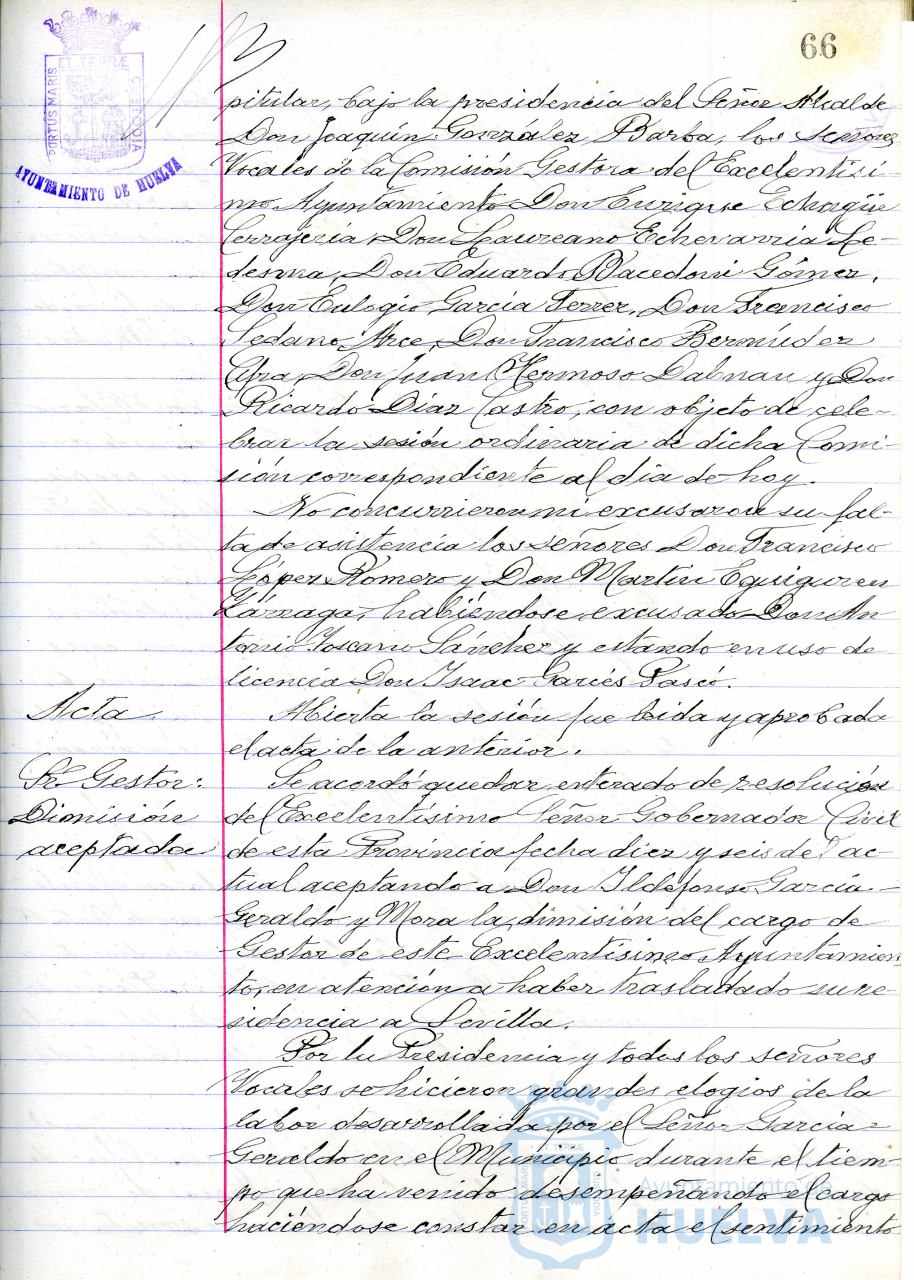 66
PORTUS MARIS ET TERRÆ CUSTODIA
AYUNTAMIENTO DE HUELVA
pitular, bajo la presidencia del Señor Alcalde
Don Joaquín González Barba, los Señores
Vocales de la Comisión Gestora del Excelentísi-
mo Ayuntamiento Don Enrique Echagüe
Cerrajería, Don Laureano Echevarría Le-
desma, Don Eduardo Macedoni Gómez,
Don Eulogio García Ferrer, Don Francisco
Sedano Arce, Don Francisco Bermúdez
Don Juan Hermoso Dalnau y Don
Ricardo Díaz Castro, con objeto de cele-
brar la sesión ordinaria de dicha Comi-
sión correspondiente al día de hoy.
No concurrieron ni excusaron su fal-
ta de asistencia los señores Don Francisco
López Romero y Don Martín Eguiguren
Zárraga, habiéndose excusado Don An
tonio Toscano Sánchez y estando en uso de
licencia Don Isaac Garcés Pascó.
Acta.
Abierta la sesión fue leida y aprobada
el acta de la anterior.
Sr. Gestor:
Dimisión
aceptada
Se acordó quedar enterado de resolución
del Excelentísimo Señor Gobernador Civil
de esta Provincia fecha diez y seis del ac-
tual aceptando a Don Ildefonso García-
Geraldo y Mora la dimisión del cargo de
Gestor de este Excelentísimo Ayuntamien
to, en atención a haber trasladado su re
sidencia a Sevilla.
Por la Presidencia y todos los señores
Vocales se hicieron grandes elogios de la
labor desarrollada por el Señor García=
Geraldo en el Municipio durante el tiem-
po que ha venido desempeñando el cargo
haciéndose constar en acta el sentimiento
Ayuntamiento de
HUELVA